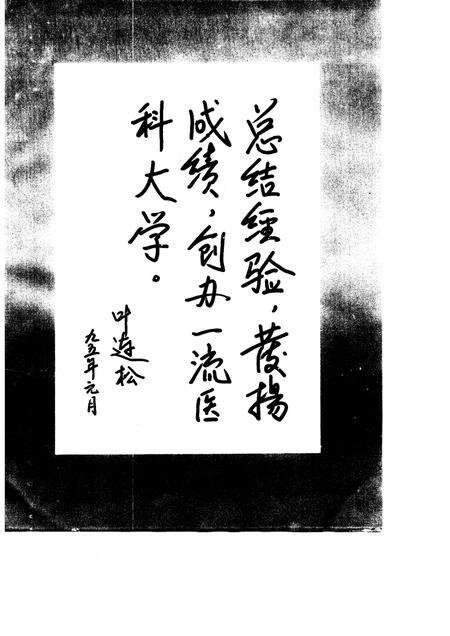 总结經验，發揚
成绩，创办一流医
科大学。
叶连松
九五年元月